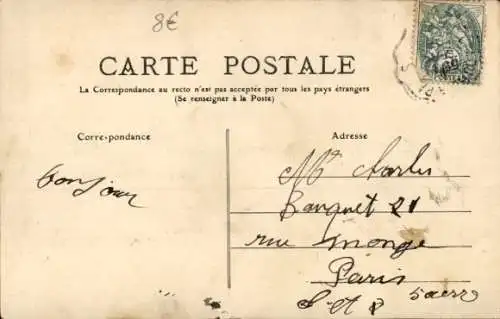 8€
CARTE POSTALE
La Correspondance au recto n'est pas acceptée par tous les pays étrangers
(Se renseigner à la Poste)
Correspondance
Adresse
bonjour
Mr Charles
Banquet 21
rue Monge
Paris